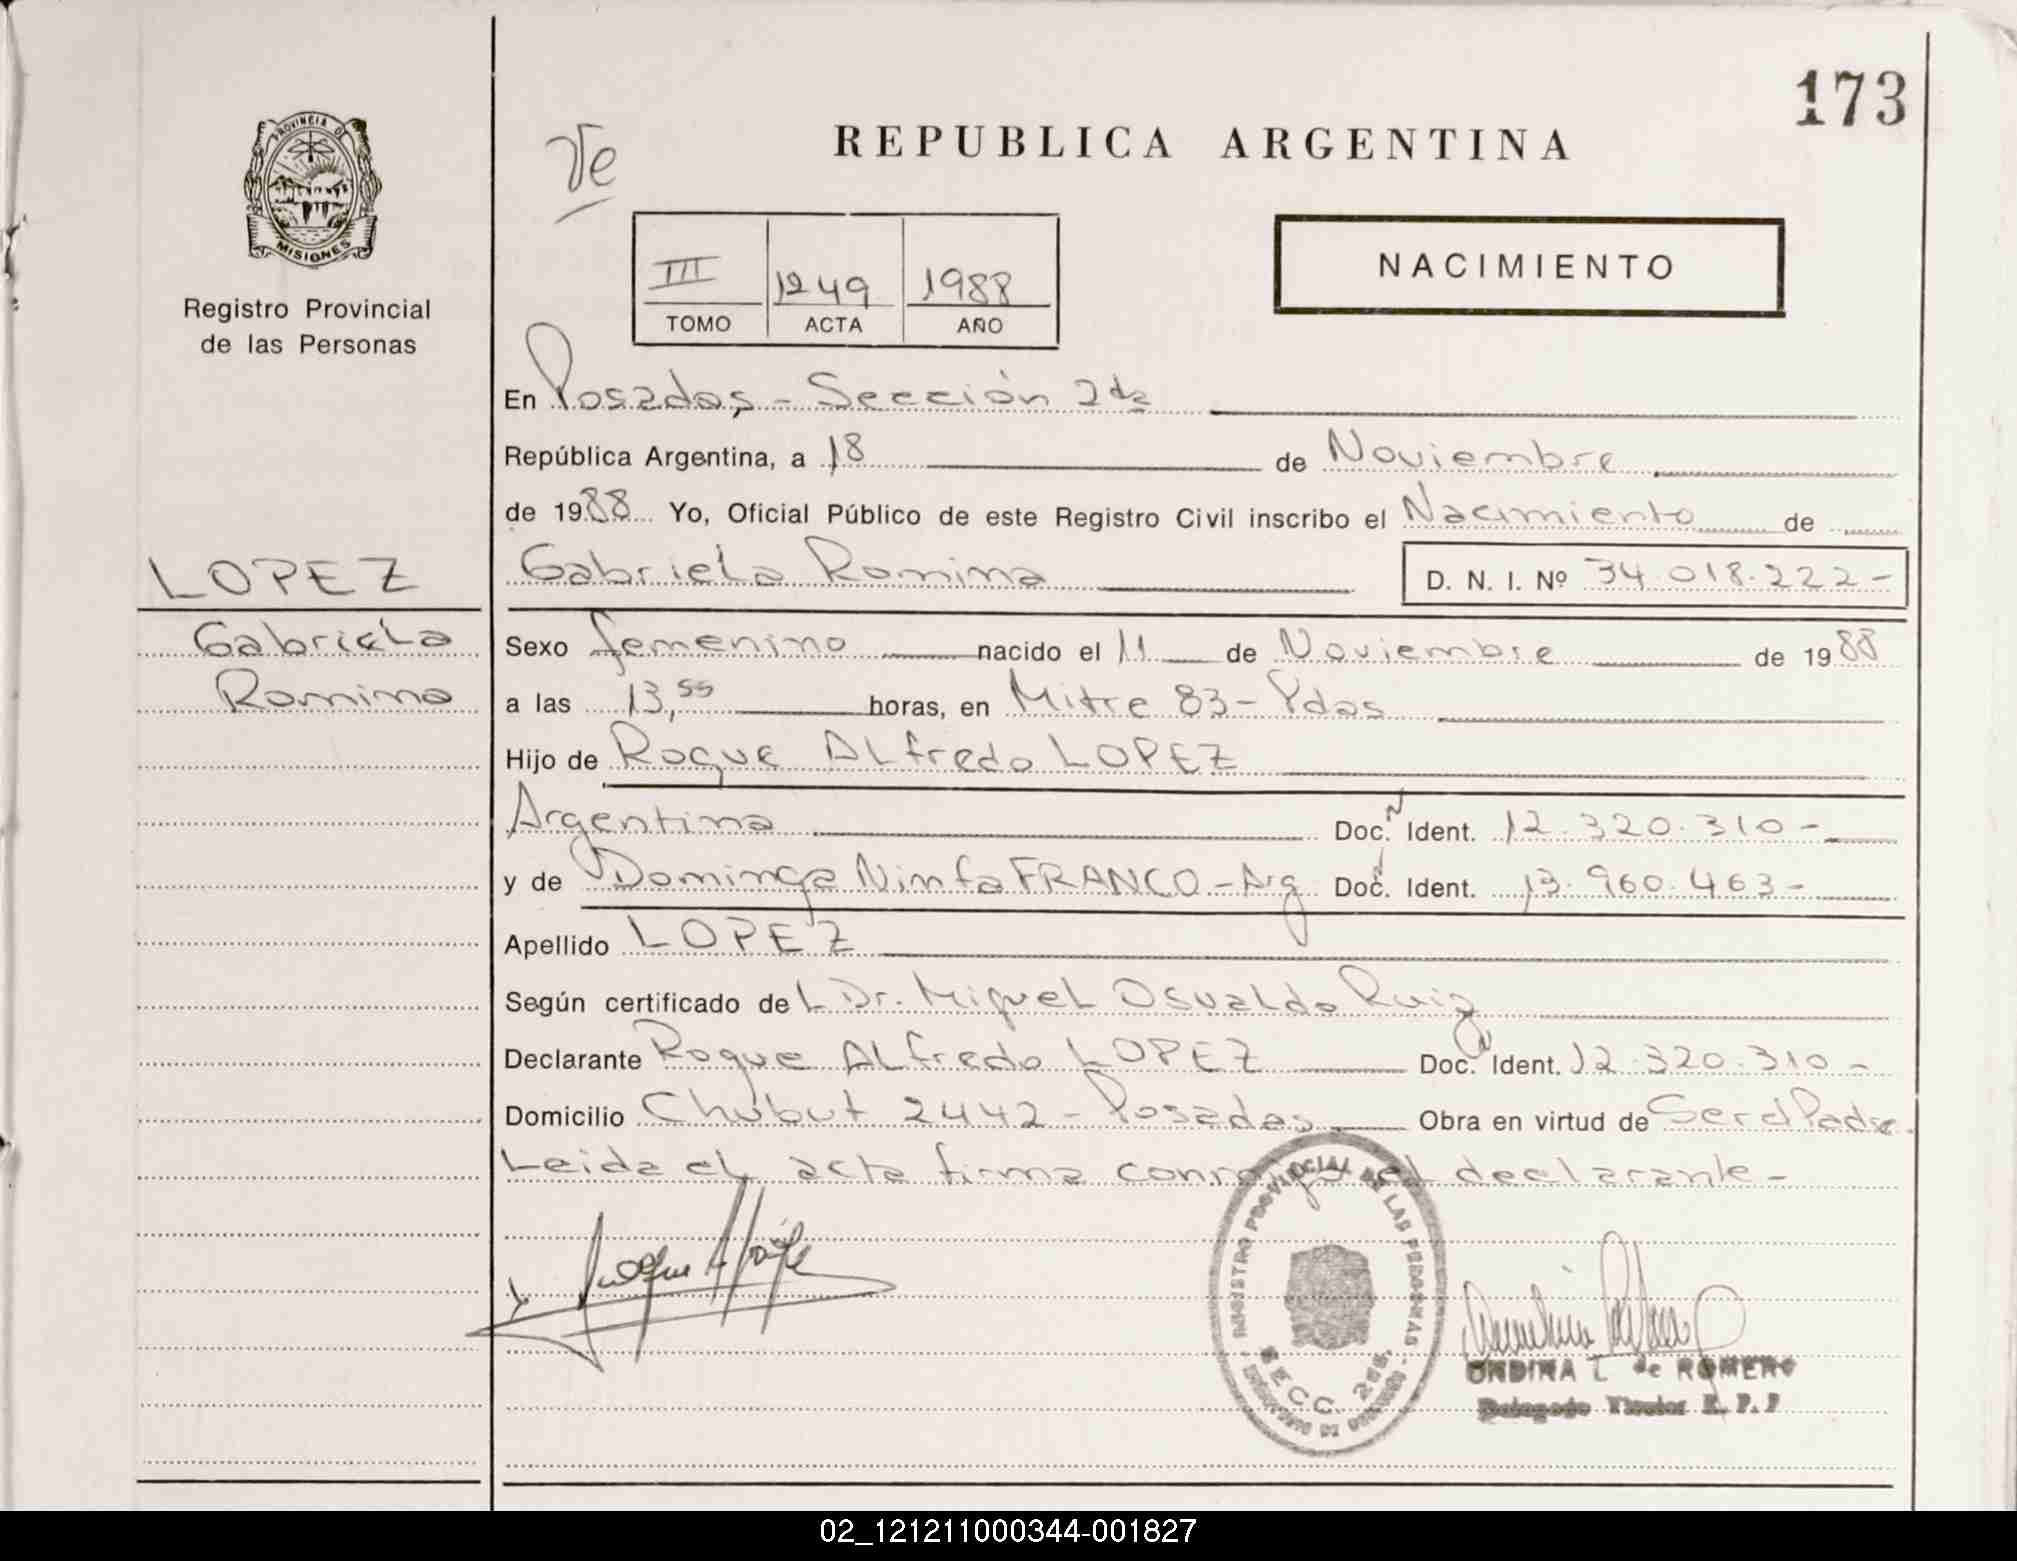 173
REPUBLICA ARGENTINA
PROVINCIA DE
MISIONES
Registro Provincial
de las Personas
Ve
NACIMIENTO
III 1249 1988
TOMO ACTA AÑO
En Posadas, - Sección 2da
República Argentina, a 18 de Noviembre
de 1988 Yo, Oficial Público de este Registro Civil inscribo el Nacimiento de
LOPEZ
Gabriela Romina
D. N. I. Nº 34.018.222-
Gabriela
Romina
Sexo femenino nacido el 11 de Noviembre de 1988
a las 13,55 horas, en Mitre 83 - Pdas
Hijo de Roque ALfredo LOPEZ
Argentina Doc. Ident. 12.320.310-
y de Dominga Ninfa FRANCO - Arg Doc. Ident. 13.960.463-
Apellido LOPEZ
Según certificado deL Dr. MigueL OsvaLdo Ruiz
Declarante Roque ALfredo LOPEZ Doc. Ident. 12.320.310-
Domicilio Chubut 2442 - Posadas Obra en virtud de Ser el Padre.
Leida eL acta firma conmigo el declarante -
REGISTRO PROVINCIAL DE LAS PERSONAS
SECC. 2da.
ONDINA L de ROMERO
02_121211000344-001827